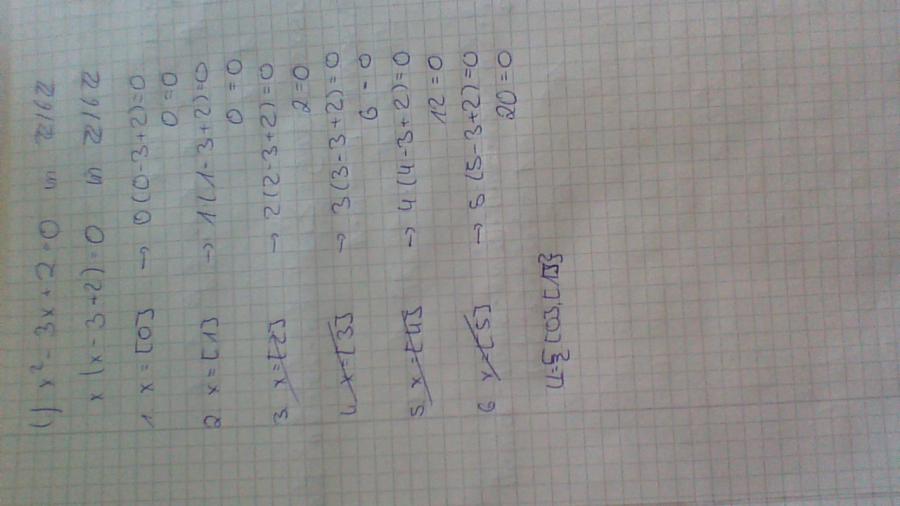 1) x² - 3x + 2 = 0 in ℤ/6ℤ
x (x - 3 + 2) = 0 in ℤ/6ℤ
1 x = [0] → 0 (0 - 3 + 2) = 0
0 = 0
2 x = [1] → 1 (1 - 3 + 2) = 0
0 = 0
3 x = [2] → 2 (2 - 3 + 2) = 0
2 = 0
4 x = [3] → 3 (3 - 3 + 2) = 0
6 = 0
5 x = [4] → 4 (4 - 3 + 2) = 0
12 = 0
6 x = [5] → 5 (5 - 3 + 2) = 0
20 = 0
L = {[0], [1]}